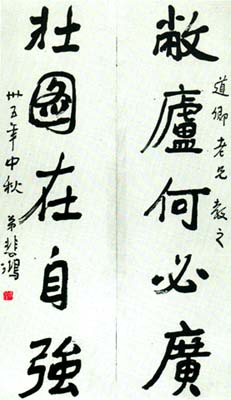 道卿老兄教之
敝廬何必廣
壯圖在自強
卅五年中秋 弟悲鴻